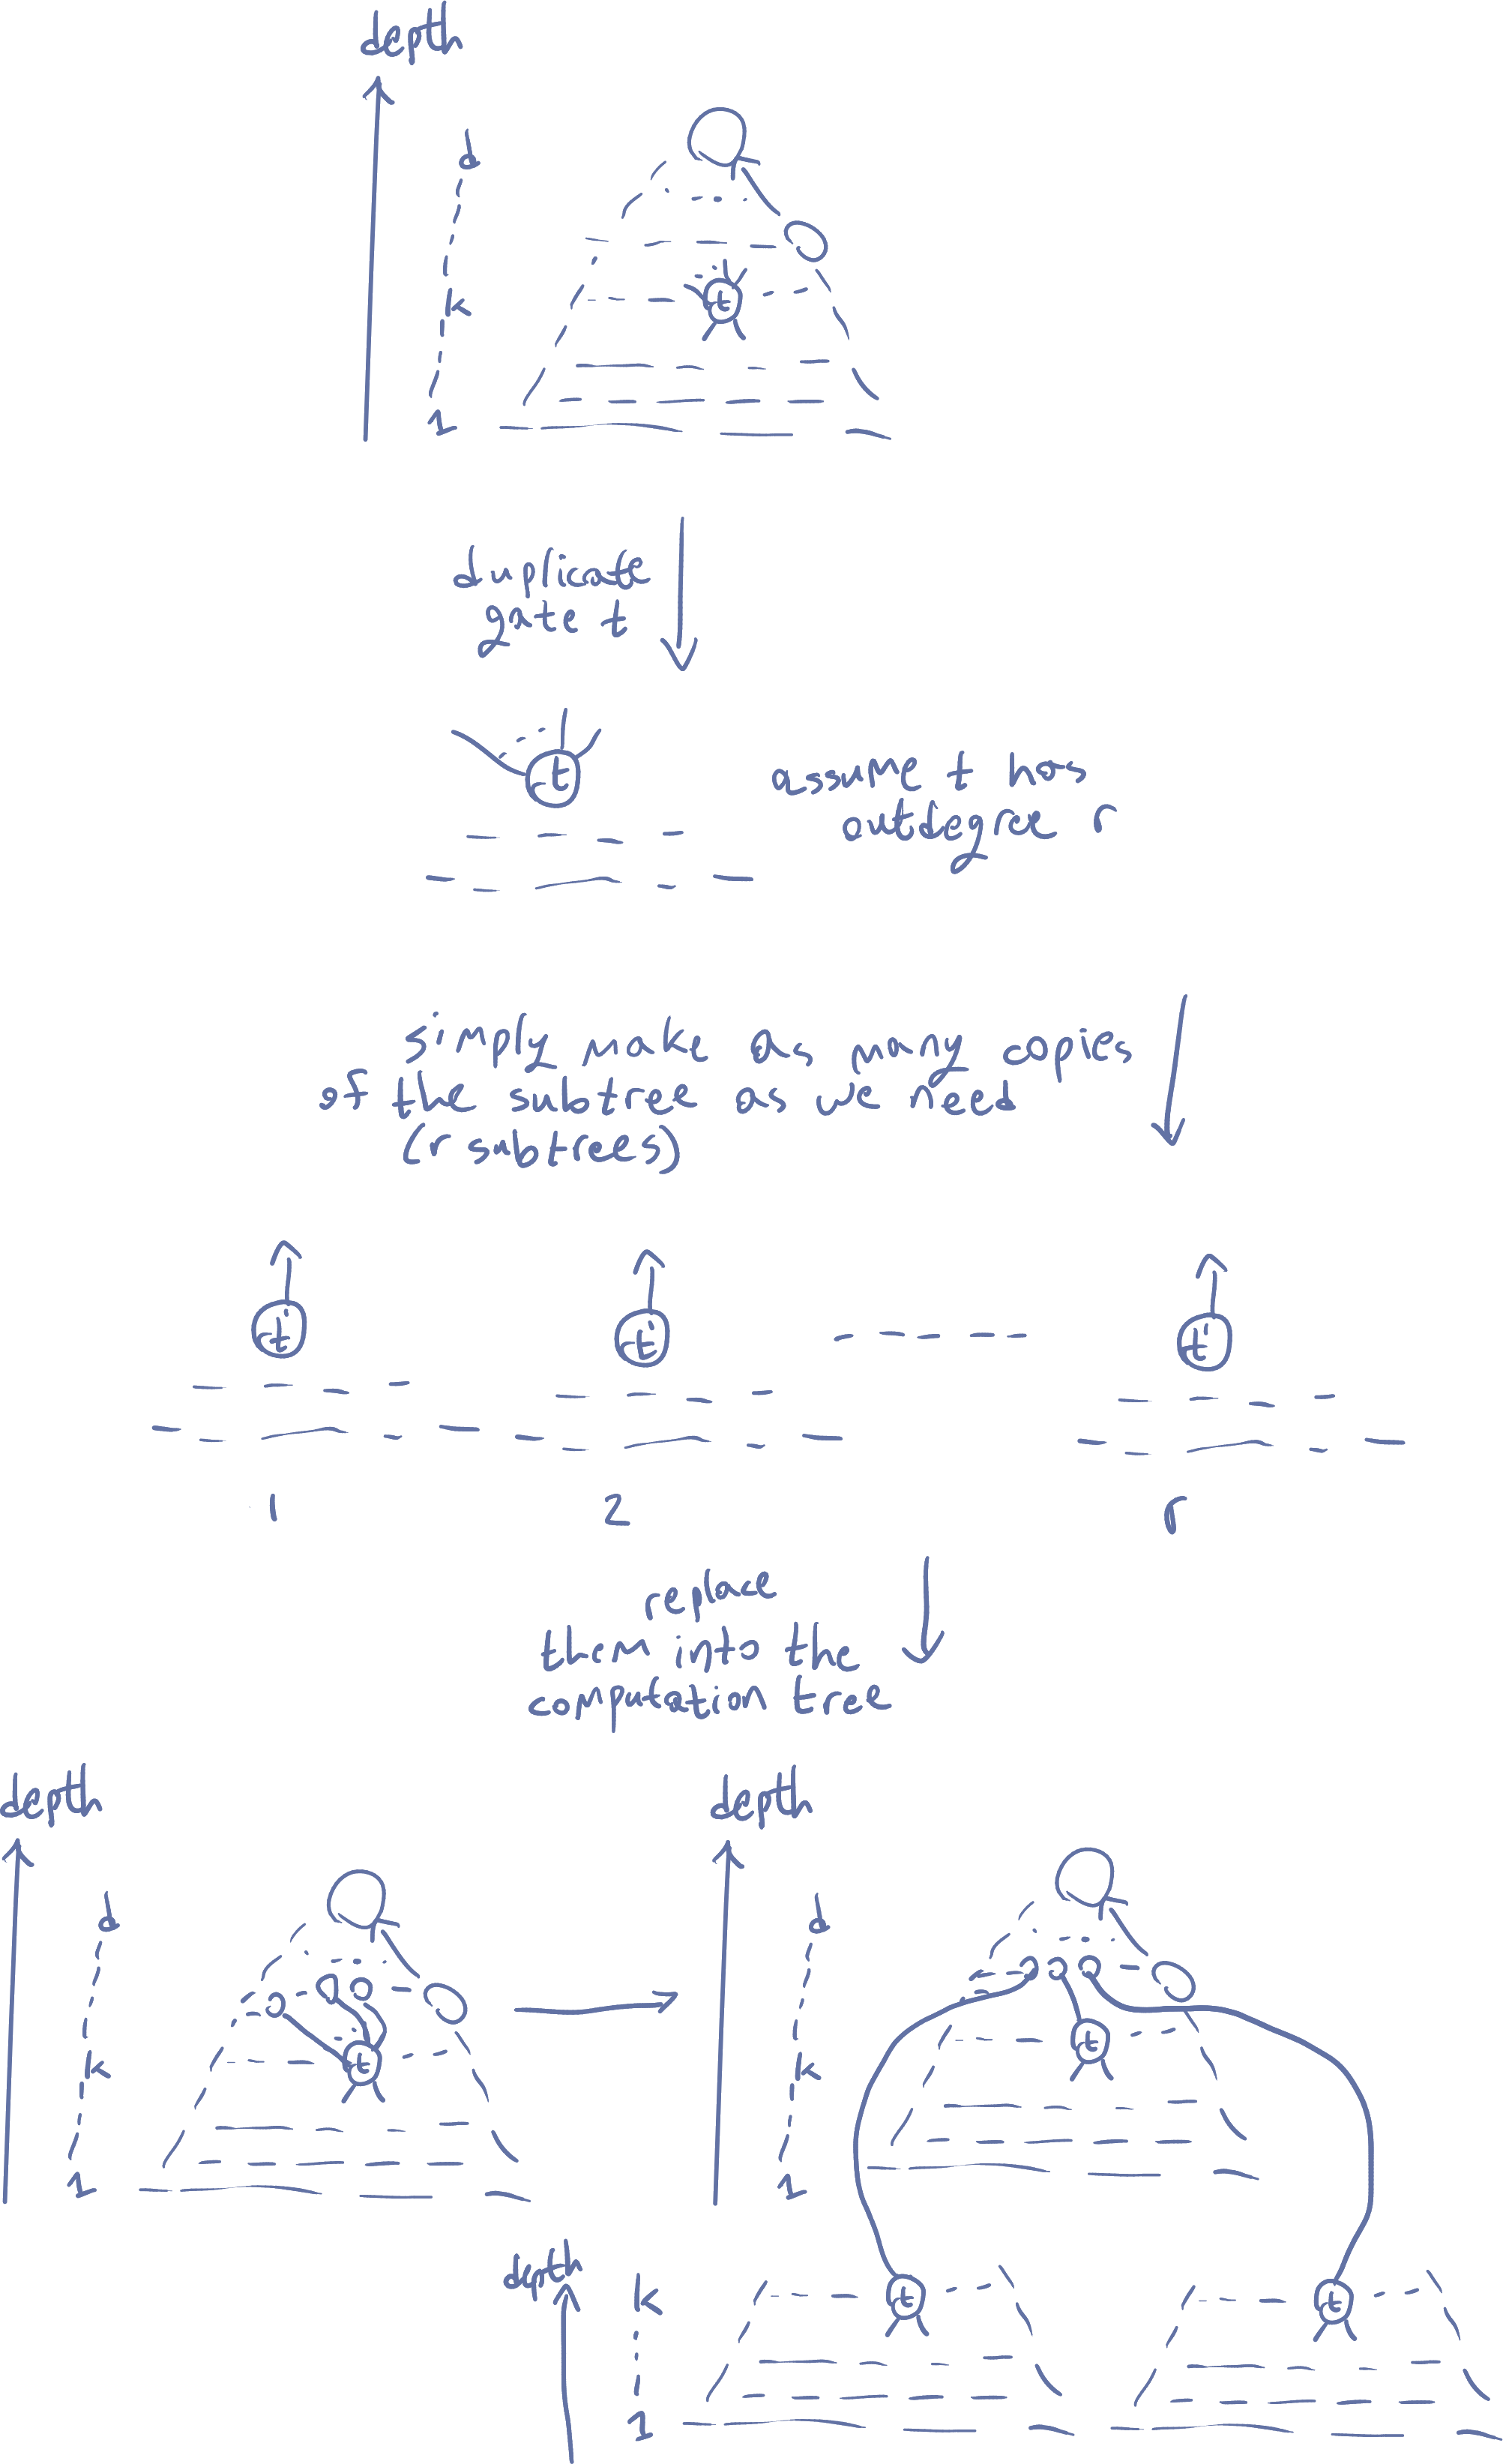 depth
d
k
t
1
duplicate
gate t
t
assume t has
outdegree r
simply make as many copies
of the subtree as we need
(r subtrees)
t t t
1 2 r
replace
them into the
computation tree
depth depth
d d
k t k t
1 1
depth
k t t
1